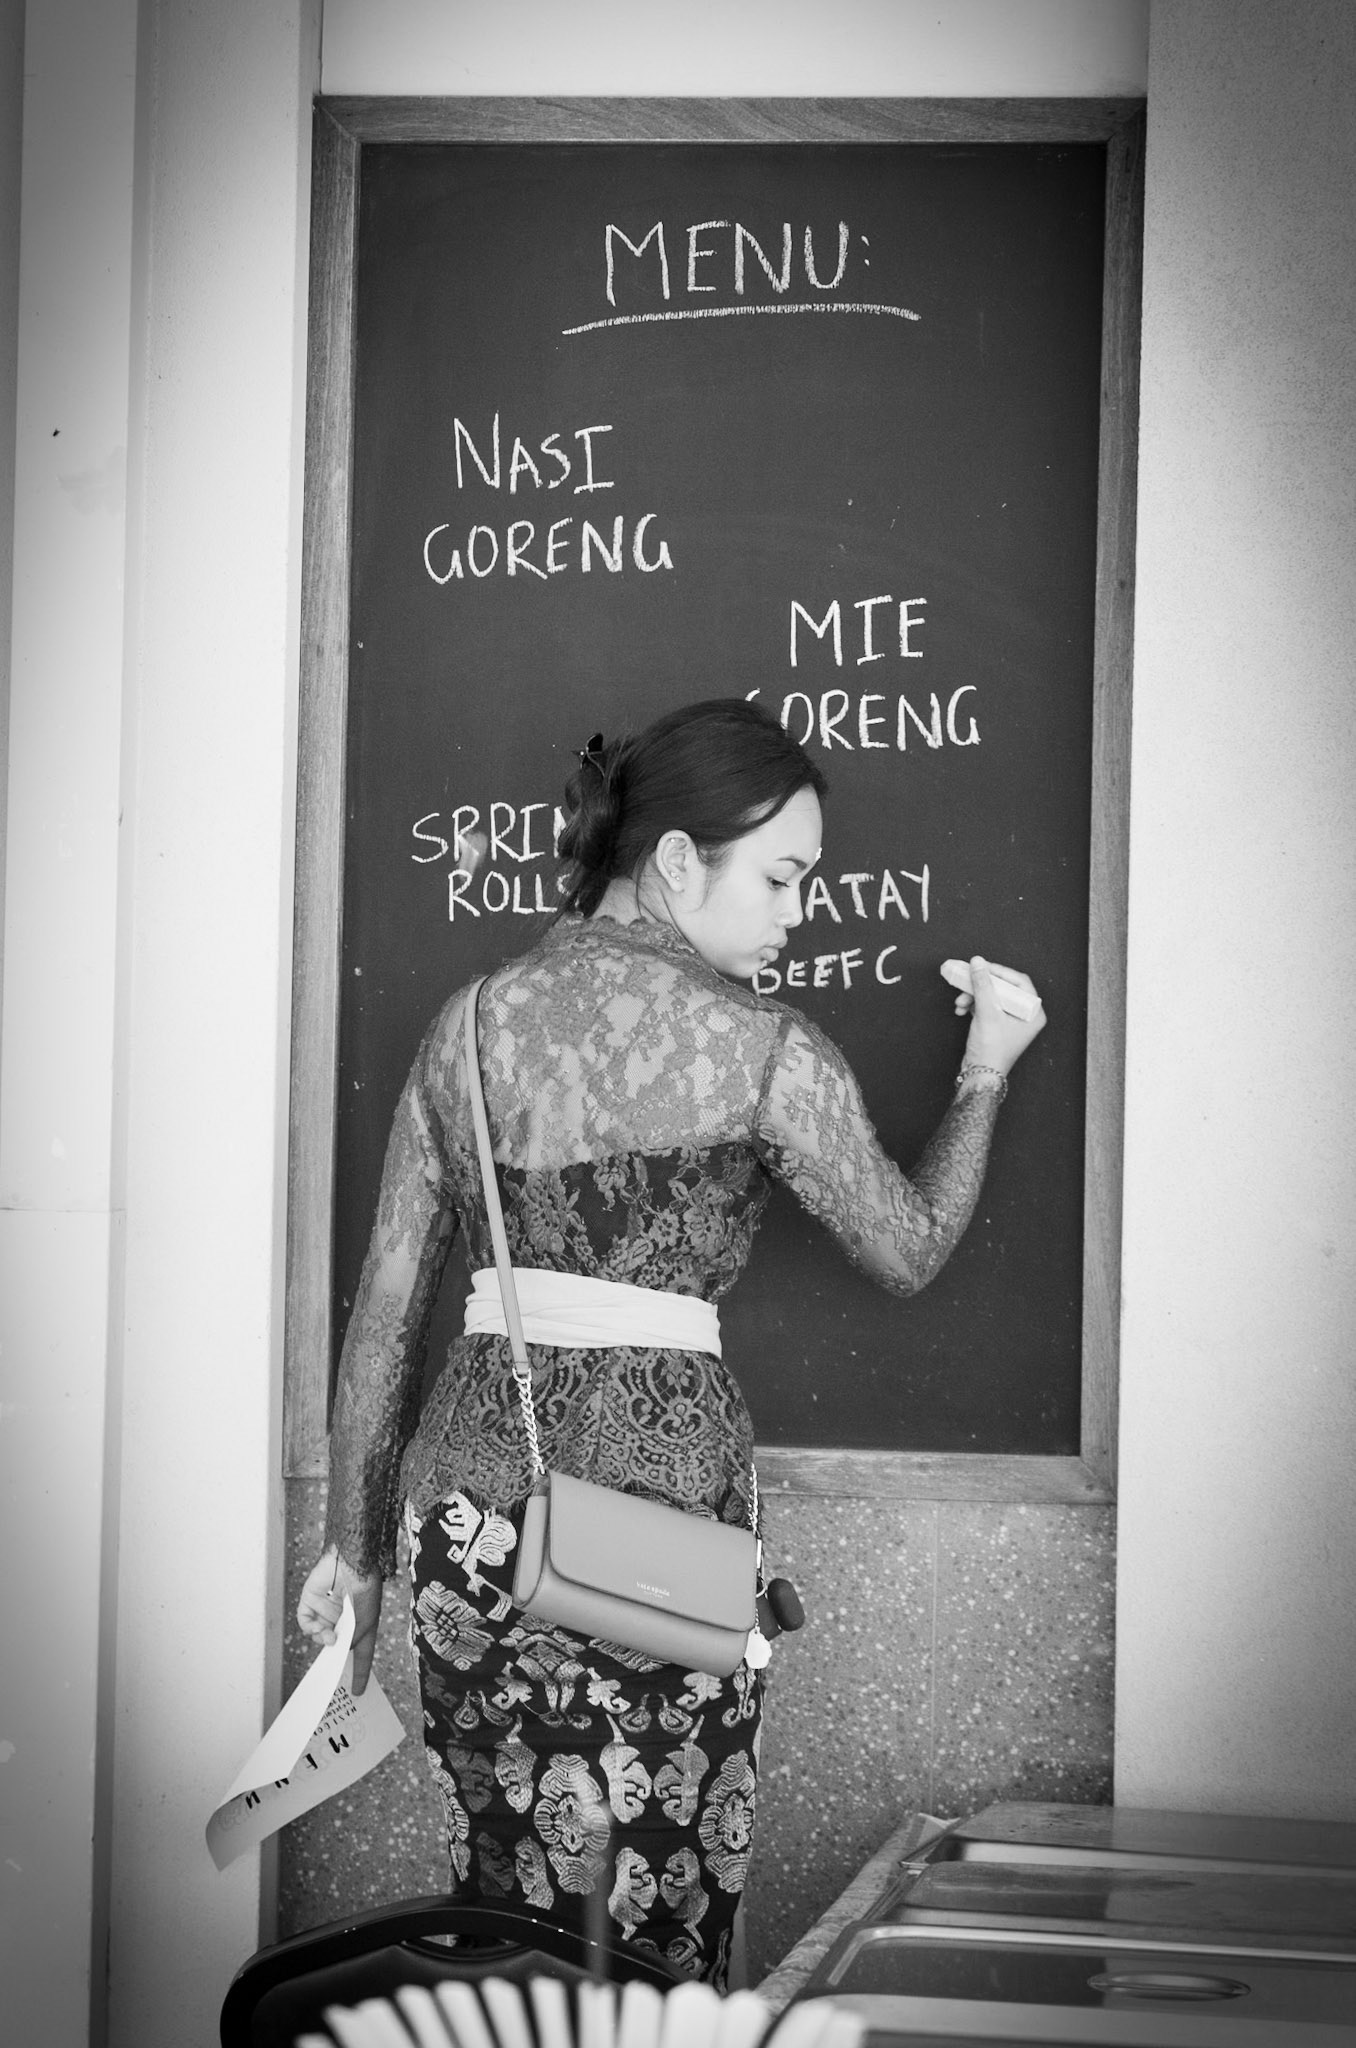 MENU:
NASI
GORENG
MIE
GORENG
SPRIN
ROLLS
ATAY
BEEF C
kate spade
MENU